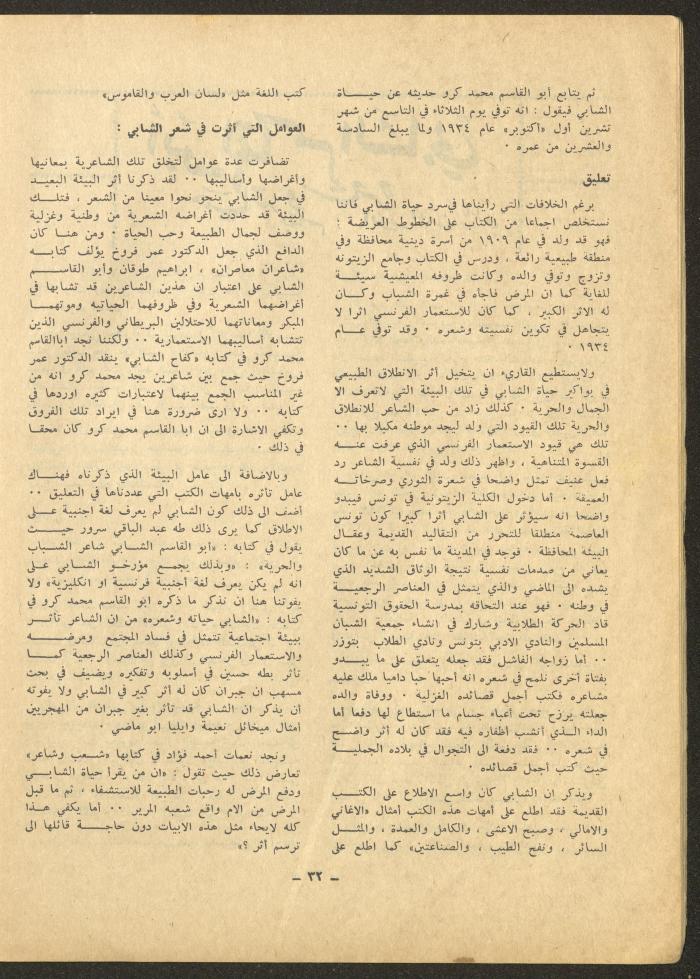 ثم يتابع أبو القاسم محمد كرو حديثه عن حيـــاة
الشابي فيقول : انه توفي يوم الثلاثاء في التاسع من شهر
تشرين أول «أكتوبر» عام ١٩٣٤ ولما يبلغ السادسة
والعشرين من عمره ٠
تعليق
برغم الخلافات التي رأيناها في سرد حياة الشابي فاننا
نستخلص اجماعا من الكتاب على الخطوط العريضة ؛
فهو قد ولد في عام ١٩٠٩ من أسرة دينية محافظة وفي
منطقة طبيعية رائعة ، ودرس في الكتاب وجامع الزيتونه
وتزوج وتوفي والده وكانت ظروفه المعيشية سيئــة
للغاية كما ان المرض فاجأه في غمرة الشباب وكــان
له الاثر الكبير ، كما كان للاستعمار الفرنسي اثرا لا
يتجاهل في تكوين نفسيته وشعره ٠ وقد توفي عــام
١٩٣٤ ٠
ولايستطيع القاريء ان يتخيل أثر الانطلاق الطبيعي
في بواكير حياة الشابي في تلك البيئة التي لاتعرف الا
الجمال والحرية ٠ كذلك زاد من حب الشاعر للانطلاق
والحرية تلك القيود التي ولد ليجد موطنه مكبلا بها ٠٠
تلك هي قيود الاستعمار الفرنسي الذي عرفت عنــه
القسوة المتناهية ، واظهر ذلك ولد في نفسية الشاعر رد
فعل عنيف تمثل واضحا في شعرة الثوري وصرخاتــه
العميقة ٠ أما دخول الكلية الزيتونية في تونس فيبدو
واضحا انه سيؤثر على الشابي أثرا كبيرا كون تونس
العاصمة منطلقا للتحرر من التقاليد القديمة وعقــال
البيئه المحافظة ٠ فوجد في المدينة ما نفس به عن ما كان
يعاني من صدمات نفسية نتيجة الوثاق الشديد الذي
يشده الى الماضي والذي يتمثل في العناصر الرجعيــة
في وطنه ٠ فهو عند التحاقه بمدرسة الحقوق التونسية
قاد الحركة الطلابية وشارك في انشاء جمعية الشبان
المسلمين والنادي الادبي بتونس ونادي الطلاب بتوزر
٠٠ أما زواجه الفاشل فقد جعله يتعلق على ما يبــدو
بفتاة أخرى نلمح في شعره انه أحبها حبا داميا ملك عليه
مشاعره فكتب أجمل قصائده الغزلية ٠ ووفاة والده
جعلته يرزح تحت أعباء جسام ما استطاع لها دفعا أما
الداء الــذي أنشب أظفاره فيه فقد كان له أثر واضــح
في شعره ٠٠ فقد دفعة الى التجوال في بلاده الجميلــة
حيث كتب أجمل قصائده ٠
ويذكر ان الشابي كان واسع الاطلاع على الكتــب
القديمة فقد اطلع على أمهات هذه الكتب أمثال «الاغاني
والامالي ، وصبح الاعشى ، والكامل والعمدة ، والمثــل
السائر ، ونفح الطيب ، والصناعتين» كما اطلع على
كتب اللغة مثل «لسان العرب والقاموس»
العوامل التي أثرت في شعر الشابي :
تضافرت عدة عوامل لتخلق تلك الشاعرية بمعانيها
وأغراضها وأساليبها ٠٠ لقد ذكرنا أثر البيئة البعيــد
في جعل الشابي ينحو نحوا معينا من الشعر ، فتلــك
البيئة قد حددت أغراضه الشعرية من وطنية وغزلية
ووصف لجمال الطبيعة وحب الحياة ٠ ومن هنــا كان
الدافع الذي جعل الدكتور عمر فروخ يؤلف كتابــه
«شاعران معاصران» ، ابراهيم طوقان وأبو القاســم
الشابي على اعتبار ان هذين الشاعرين قد تشابها في
أغراضهما الشعرية وفي ظروفهما الحياتيه وموتهمــا
المبكر ومعاناتهما للاحتلالين البريطاني والفرنسي الذين
تتشابه أساليبهما الاستعمارية ٠٠ ولكننا نجد اباالقاسم
محمد كرو في كتابه «كفاح الشابي» ينقد الدكتور عمر
فروخ حيث جمع بين شاعرين يجد محمد كرو انه من
غير المناسب الجمع بينهما لاعتبارات كثيره اوردها في
كتابه ٠٠ ولا ارى ضرورة هنا في ايراد تلك الفروق
وتكفي الاشارة الى ان ابا القاسم محمد كرو كان محقــا
في ذلك ٠
وبالاضافة الى عامل البيئة الذي ذكرناه فهنــاك
عامل تأثره بامهات الكتب التي عددناها في التعليق ٠٠
أضف الى ذلك كون الشابي لم يعرف لغة اجنبية علــى
الاطلاق كما يرى ذلك طه عبد الباقي سرور حيــث
يقول في كتابه : «أبو القاسم الشــابي شاعر الشــباب
والحرية» : «وبذلك يجمــع مؤرخــو الشــابي علــى
انه لم يكن يعرف لغة أجنبية فرنسية او انكليزية» ولا
يفوتنا هنا ان نذكر ما ذكره ابو القاسم محمد كرو في
كتابه : «الشابي حياته وشعره» من ان الشاعر تأثــر
ببيئة اجتماعية تتمثل في فساد المجتمع ومرضــه
والاستعمار الفرنسي وكذلك العناصر الرجعية كمــا
تأثر بطه حسين في أسلوبه وتفكيره ويضيف في بحث
مسهب ان جبران كان له أثر كبير في الشابي ولا يفوته
أن يذكر ان الشابي قد تأثر بغير جبران من المهجريين
أمثال ميخائل نعيمة وايليا ابو ماضي ٠
ونجد نعمات أحمد فؤاد في كتابها «شــعب وشاعر»
تعارض ذلك حيث تقول : «ان من يقرأ حياة الشابــي
ودفع المرض له رحبات الطبيعة للاستشفاء ، ثم ما قبل
المرض من الام واقع شعبه المرير ٠٠ أما يكفي هــذا
كله لايحاء مثل هذه الابيات دون حاجــة قائلها الى
ترسم أثر ؟»
– ٣٢ –